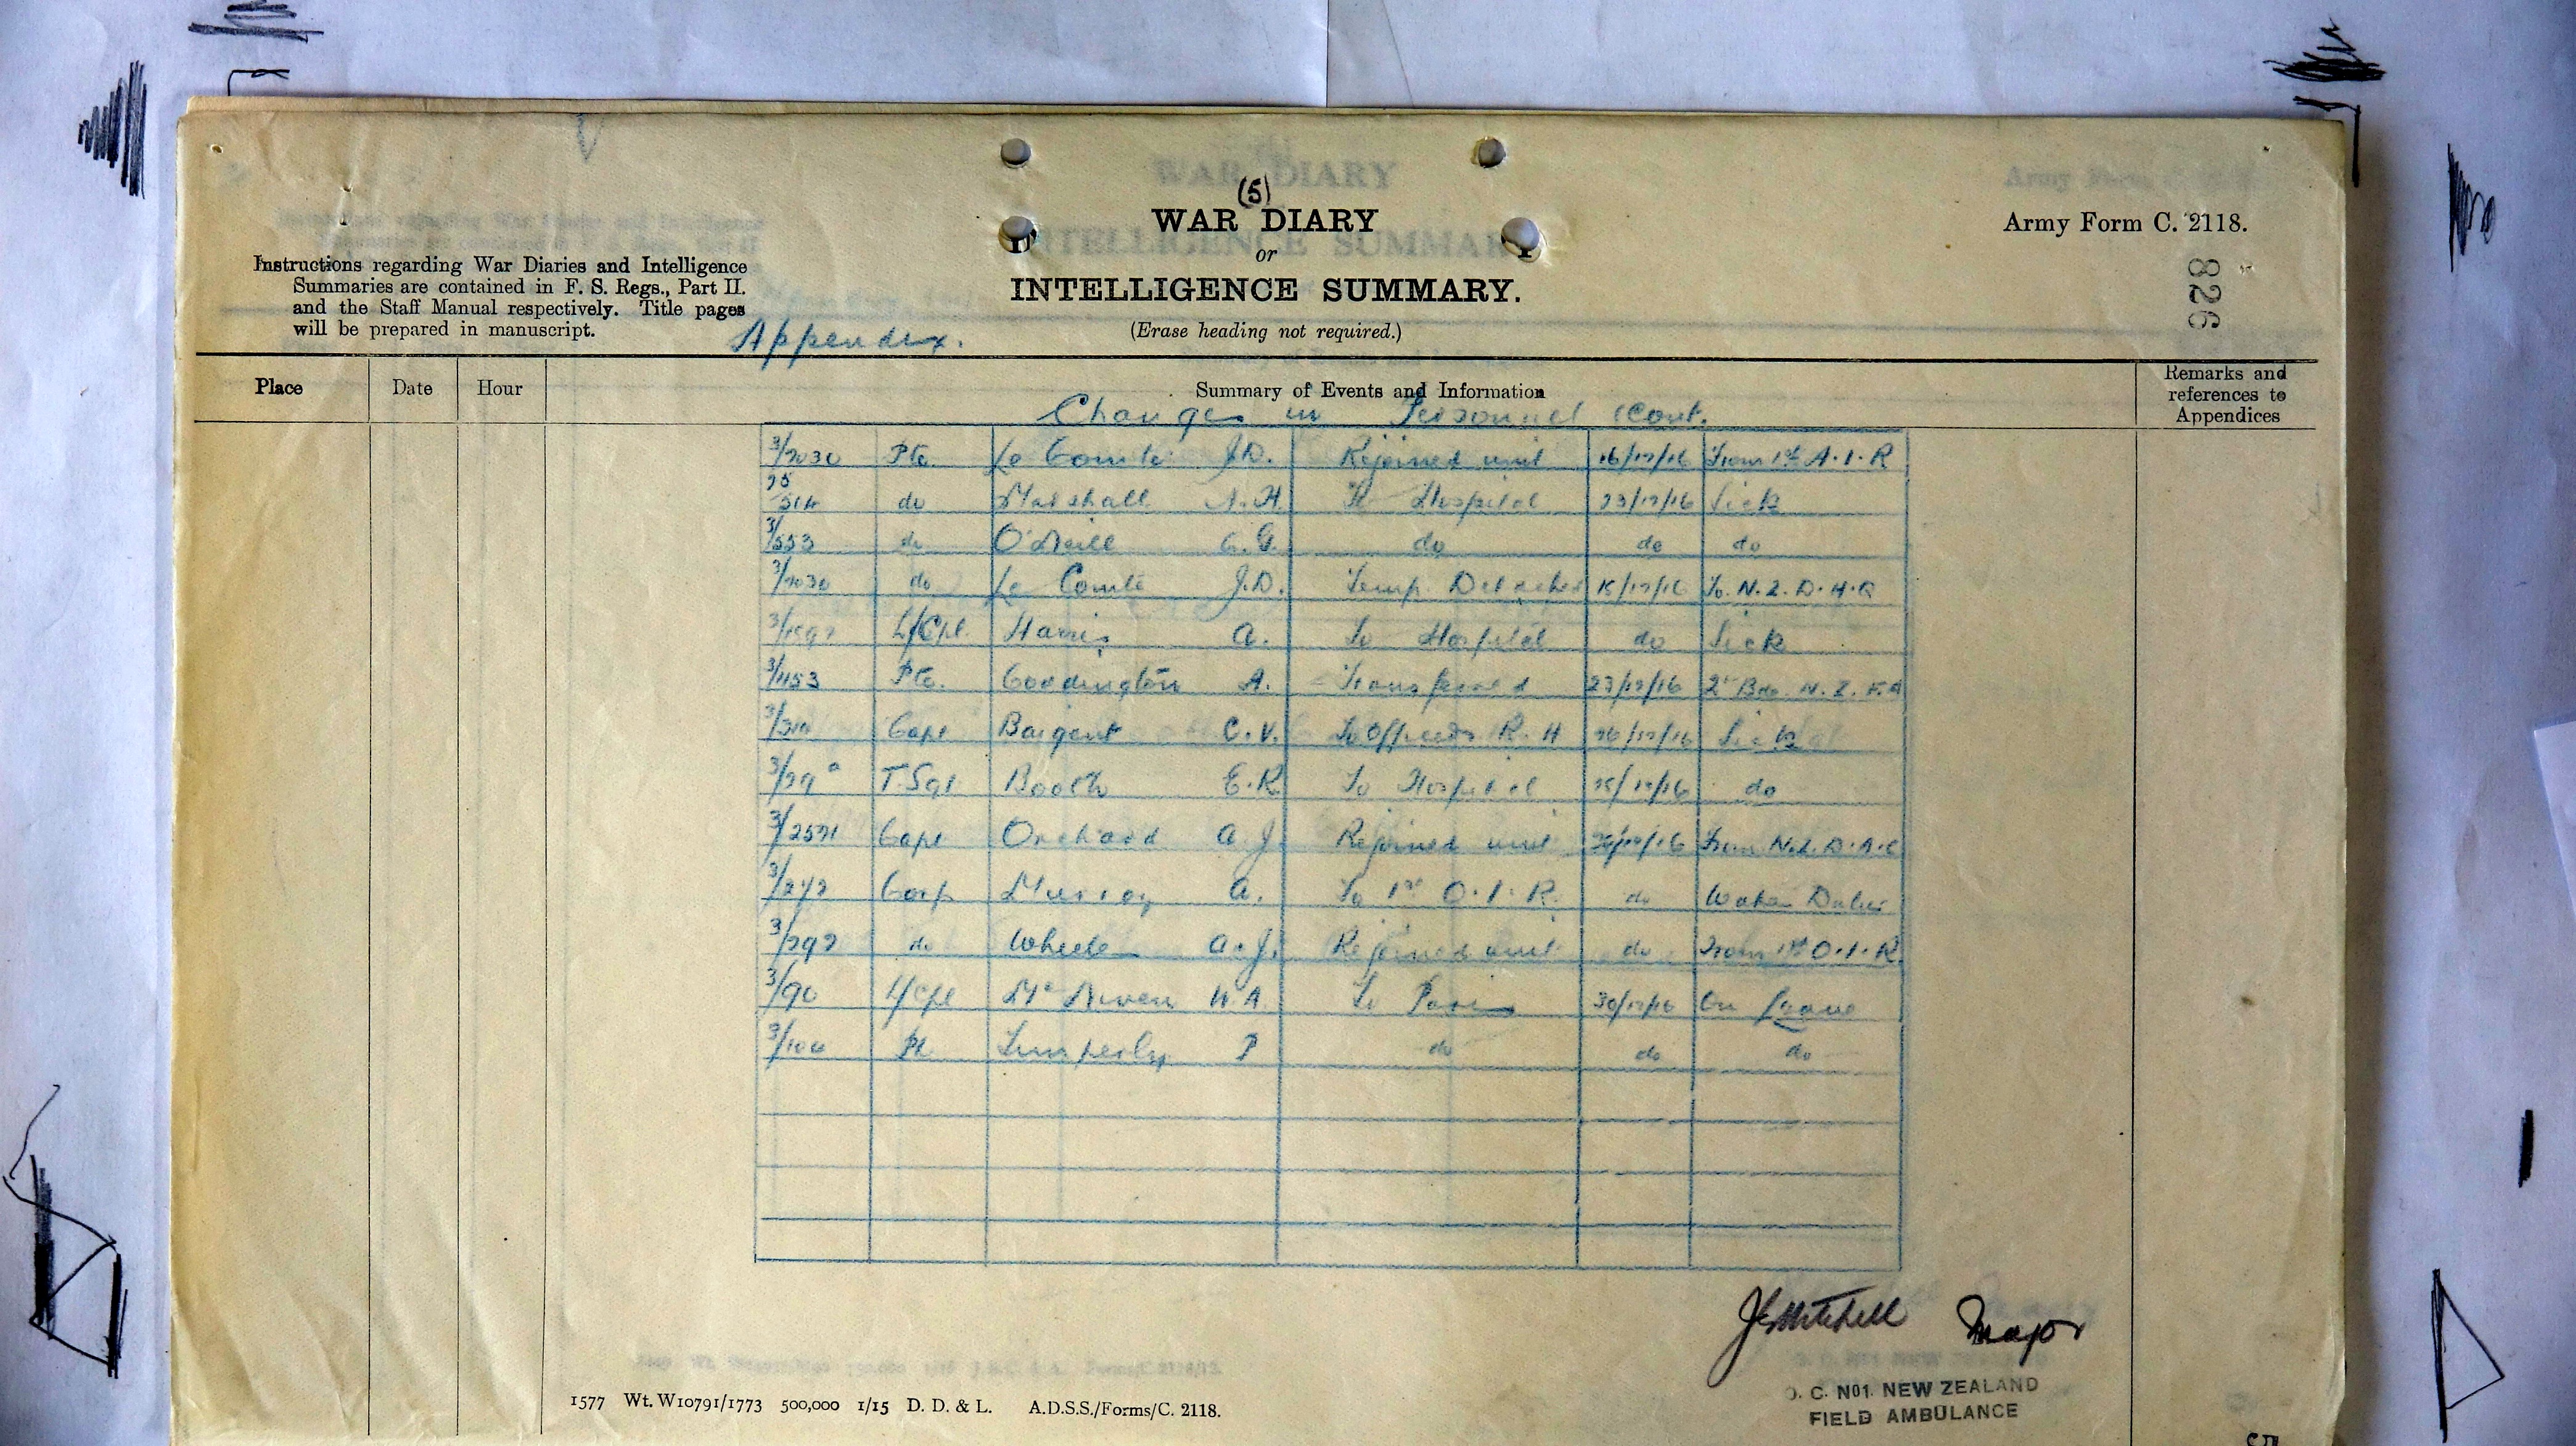 (5)
WAR DIARY
or
INTELLIGENCE SUMMARY.
(Erase heading not required.)
Army Form C. 2118.
826
Instructions regarding War Diaries and Intelligence
Summaries are contained in F. S. Regs., Part II.
and the Staff Manual respectively. Title pages
will be prepared in manuscript.
Appendix.
Place Date Hour Summary of Events and Information Remarks and references to Appendices
Changes in Personnel (Cont.
3/2030 Pte. Le Comte J.D. Rejoined unit 16/12/16 From 1st A.I.R
do Marshall To Hospital 23/12/16 Sick
3/553 do O'Neill C.G. do do do
3/2030 do Le Comte J.D. Temp. Detached To N.Z.D.H.Q
L/Cpl. Harris A. To Hospital do Sick
3/453 Pte. Coddington A. Transferred 27/12/16 N.Z.F.A
Capt Bargent C.V. To Officers R.H 26/12/16 Sick
T.Sgt Booth E.R To Hospital do
3/2571 Capt Orchard A.J. Rejoined unit From N.Z.D.A.C
Corp Murray A. To 1st O.I.R. do Water Duties
3/292 do Wheeler A.J. Rejoined unit do From 1st O.I.R.
3/90 L/Cpl McNiven W.A. To Paris 30/12/16 On Leave
Pt Timperley P do do do
J Mitchell Major
O. C. No1. NEW ZEALAND
FIELD AMBULANCE
1577 Wt. W10791/1773 500,000 1/15 D. D. & L. A.D.S.S./Forms/C. 2118.